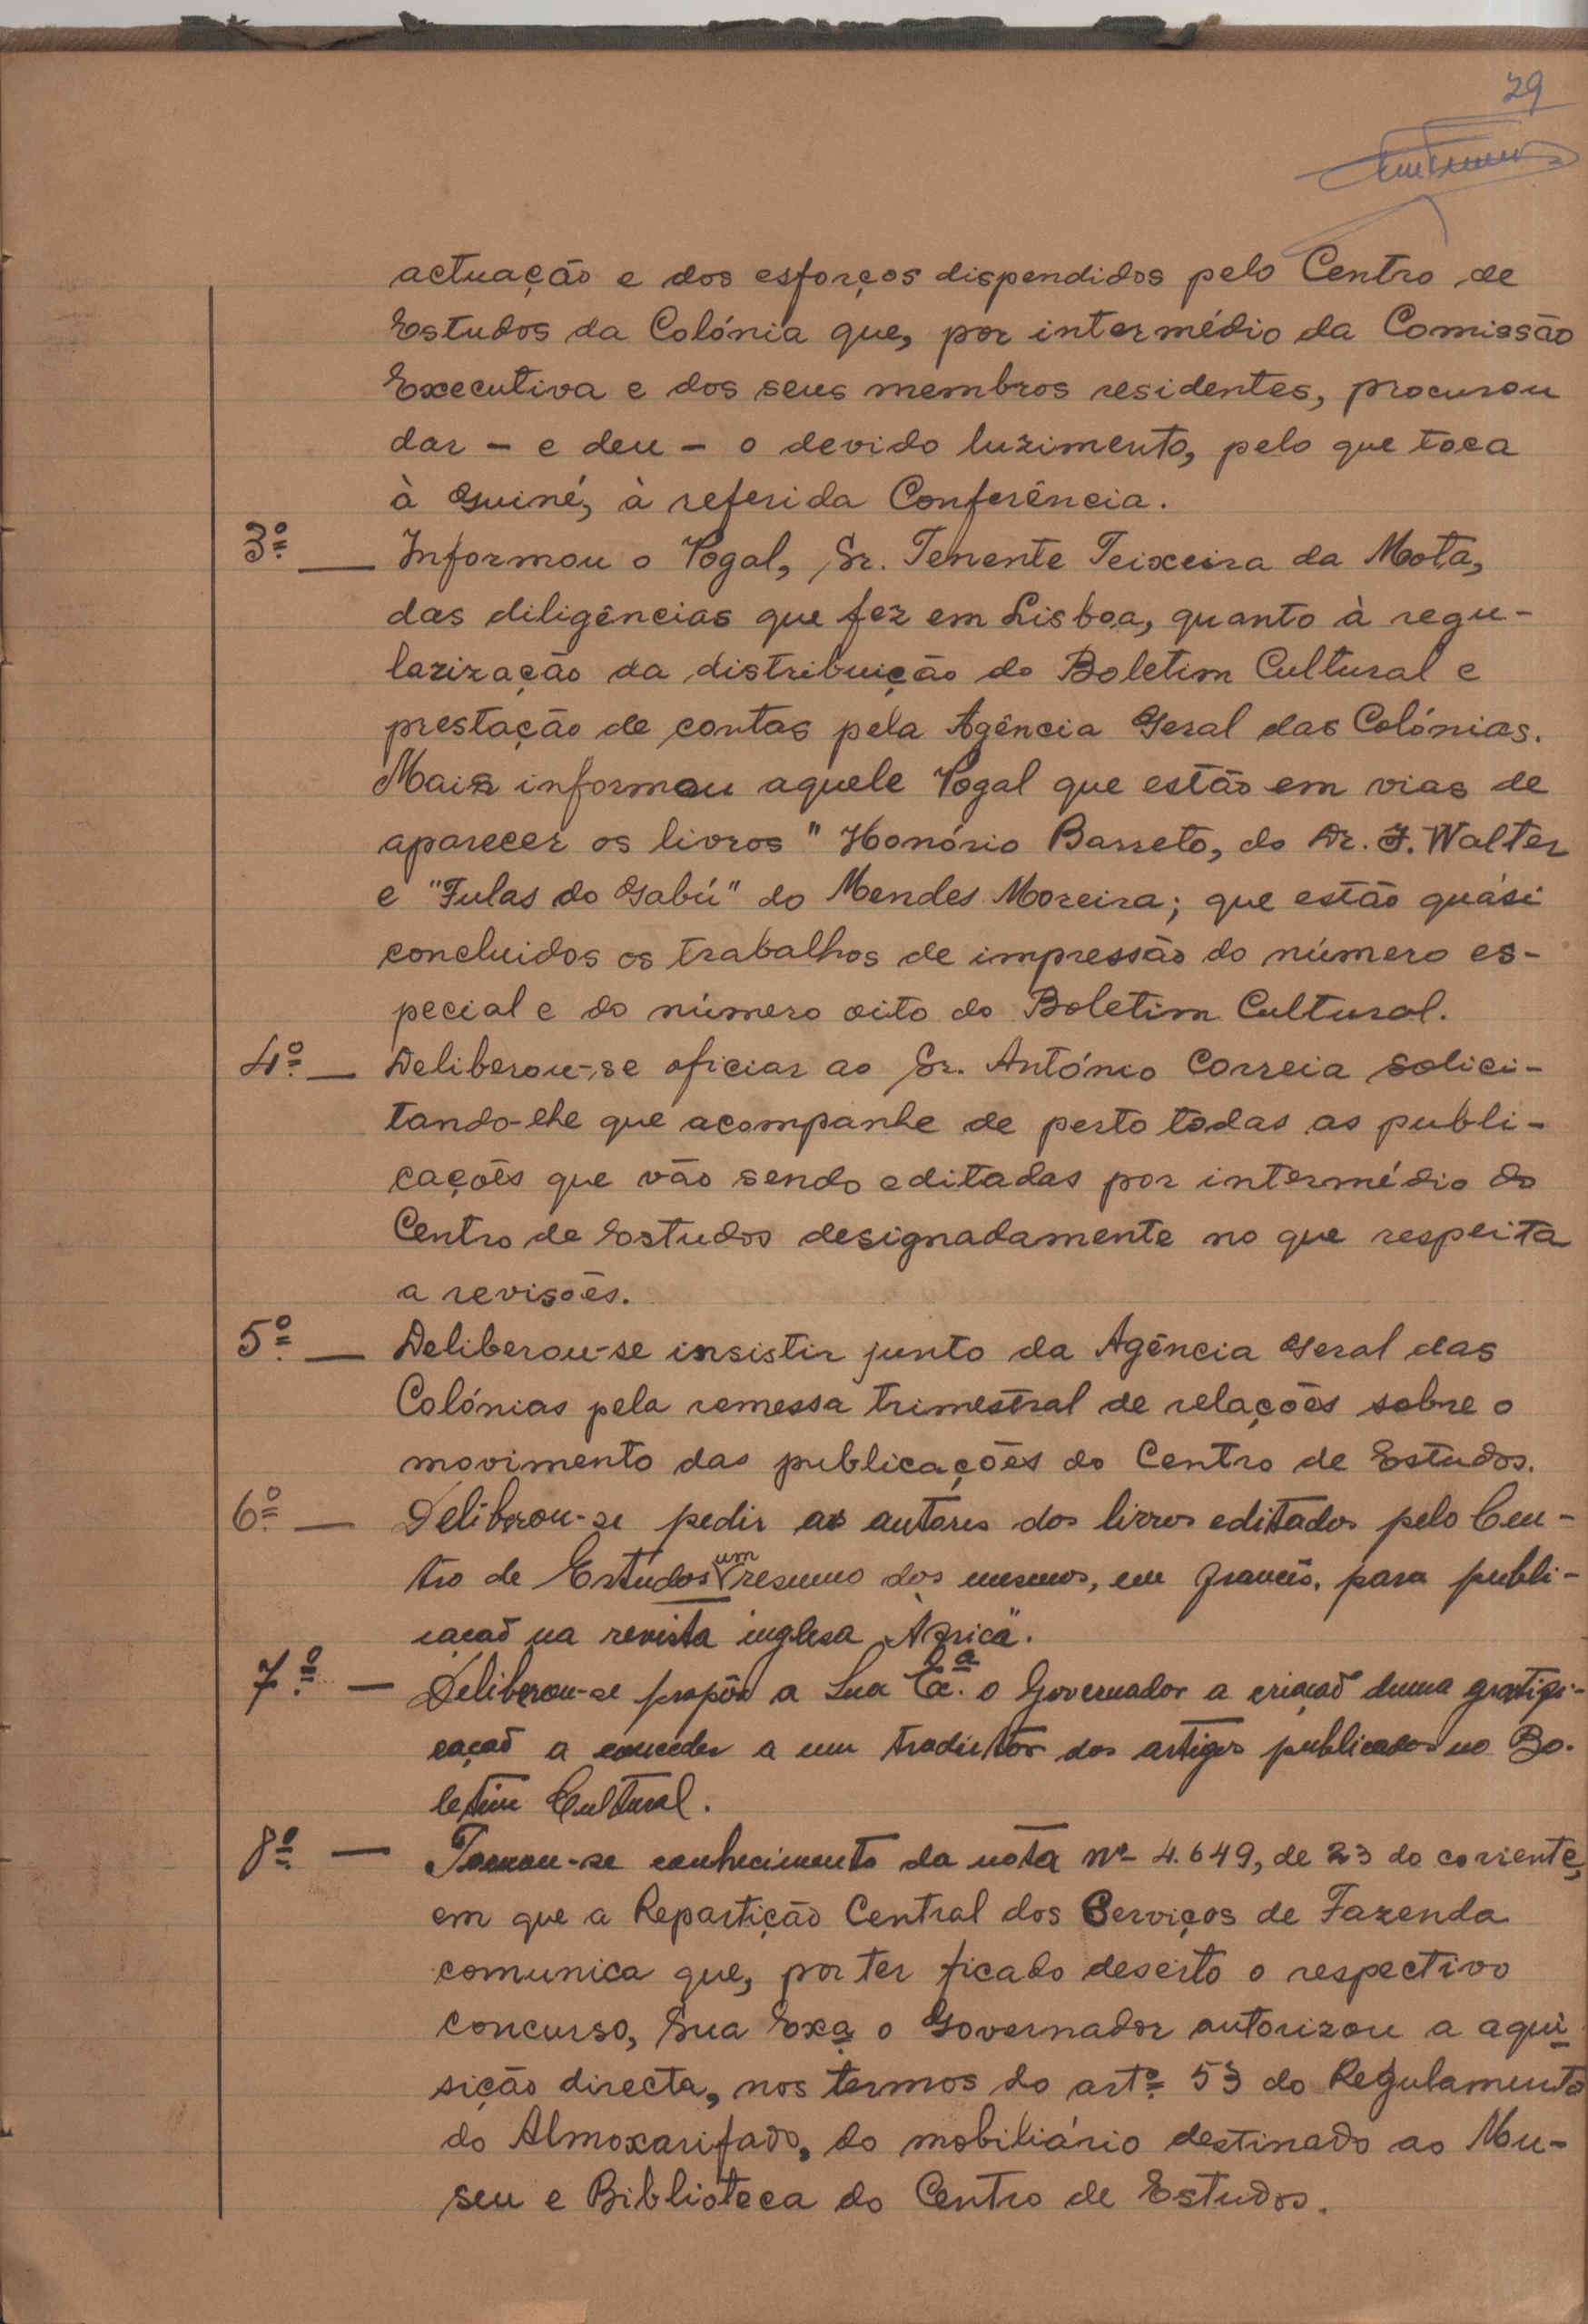 29
actuação e dos esforços dispendidos pelo Centro de
Estudos da Colónia que, por intermédio da Comissão
Executiva e dos seus membros residentes, procurou
dar - e deu - o devido luzimento, pelo que toca
à Guiné, à referida Conferência.
3º — Informou o Vogal, Sr. Tenente Teixeira da Mota,
das diligências que fez em Lisboa, quanto à regu-
larização da distribuição do Boletim Cultural e
prestação de contas pela Agência Geral das Colónias.
Mais informou aquele Vogal que estão em vias de
aparecer os livros "Honório Barreto, do Dr. J. Walter
e "Fulas do Gabú" do Mendes Moreira; que estão quási
concluidos os trabalhos de impressão do número es-
pecial e do número oito do Boletim Cultural.
4º — Deliberou-se oficiar ao Sr. António Correia solici-
tando-lhe que acompanhe de perto todas as publi-
cações que vão sendo editadas por intermédio do
Centro de Estudos designadamente no que respeita
a revisões.
5º — Deliberou-se insistir junto da Agência Geral das
Colónias pela remessa trimestral de relações sobre o
movimento das publicações do Centro de Estudos.
6º — Deliberou-se pedir aos autores dos livros editados pelo Cen-
tro de Estudos um resumo dos mesmos, em francês, para publi-
cação na revista inglesa "Africa".
7º — Deliberou-se propôr a Sua Exª. o Governador a criação duma gratifi-
cação a conceder a um tradutor dos artigos publicados no Bo-
letim Cultural.
8º — Tomou-se conhecimento da nota nº 4.649, de 23 do corrente,
em que a Repartição Central dos Serviços de Fazenda
comunica que, por ter ficado deserto o respectivo
concurso, Sua Exª o Governador autorizou a aqui-
sição directa, nos termos do artº 53 do Regulamento
do Almoxarifado, do mobiliário destinado ao Mu-
seu e Biblioteca do Centro de Estudos.